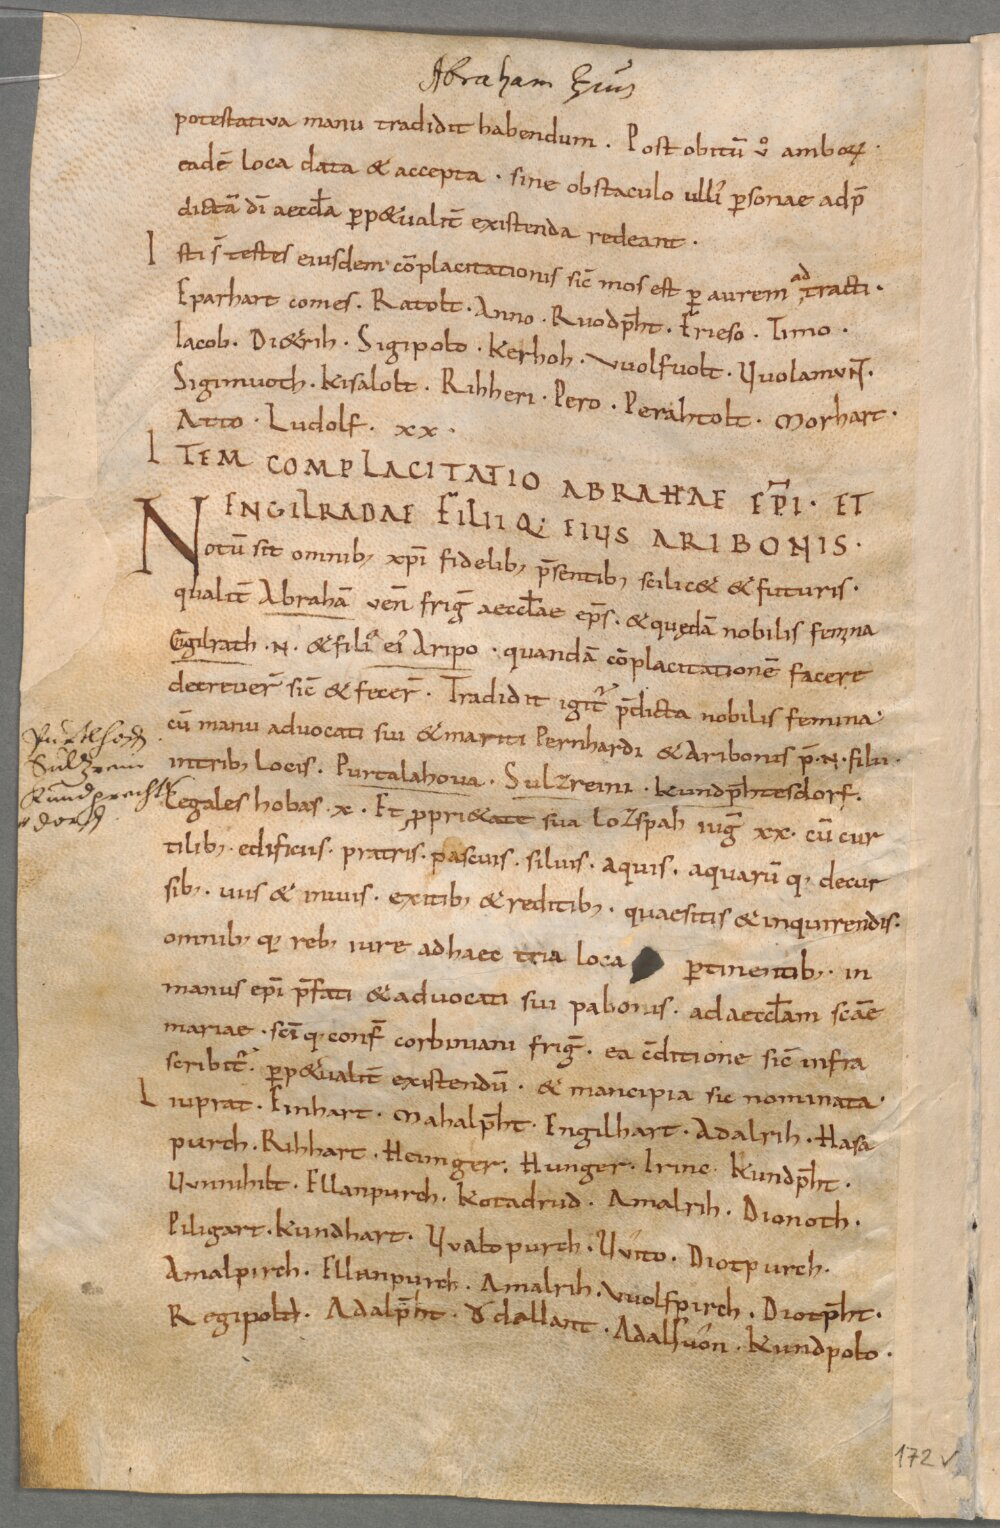 Abraham Eṕus
potestativa manu tradidit habendum . Post obitū v° amboꝝ .
eadē loca data & accepta . sine obstaculo ulli᾽ ꝑsonae adp̄
dictā dī aeccłȩ ꝑp&ualit̄ existenda redeant .
Isti s̄ testes eiusdem cōplacitationis sic̄ mos est ꝑ aurem ad tracti .
Eparhart comes . Ratolt . Anno . Ruodp̄ht . Frieso . Timo .
Iacob . Di&rih . Sigipolo . Kerhoh . vuolfuolt . Uuolamunt .
Sigimuoth . Kisalolt . Rihheri . Pero . Perahtolt . Morhart .
Atto . Ludolf . xx .
ITEM COMPLACITATIO ABRAHAE EP̄I . ET
ENGILRADAE FILIIQ; EIUS ARIBONIS .
Notū sit omnib; xp̄i fidelib; p̄sentib; scilic& & futuris .
qualit̄ Abrahā ven̄ friḡ aeccłae ep̄s . & quędā nobilis femina
Engilrath . N . & fili᾽ ei᾽ Aripo . quandā cōplacitationē facere
decreuer̄ sic̄ & fecer̄ . Tradidit igit᷑ p̄dicta nobilis femina
cū manu advocati sui & mariti Pernhardi & Aribonis p̄ . N . filii .
Purtlhoff
Sultzrain
Kundprechts
dorff
intrib; locis . Purtalahova . Sulzreini . Kundp̄htesdorf .
Legales hobas . x . Et ꝓpri&ate sua lozspah iuḡ xx . cū cur
tilib; . edificiis . pratis . pascuis . silvis . aquis . aquarū q; decur
sib; . viis & inviis . exitib; & reditib; . quaesitis & inquirendis .
omnib; q; reb; iure adhaec tria loca ꝑtinentib; . in
manus ep̄i p̄fati & advocati sui pabonis . ad aeccłam scāe
mariae . scī q; conf̄ corbiniani friḡ . ea c̄ditione sic̄ infra
scribit᷑ . ꝑp&ualit̄ existendū . & mancipia sic nominata .
Liuprat . Einhart . Mahalp̄ht . Engilhart . Adalrih . Hasa
purch . Rihhart . Heimger . Hunger . Irinc . Kundp̄ht .
Uvnnihilt . Ellanpurch . Kotadrud . Amalrih . Dionoth .
Piligart . Kundhart . Uvaltopurch . Uvito . Diotpurch .
Amalpirch . Ellanpurch . Amalrih . vuolfpirch . Diotp̄ht .
Regipold . Adalp̄ht . Ödallant . Adalsuôn . Kundpolo .
172 v